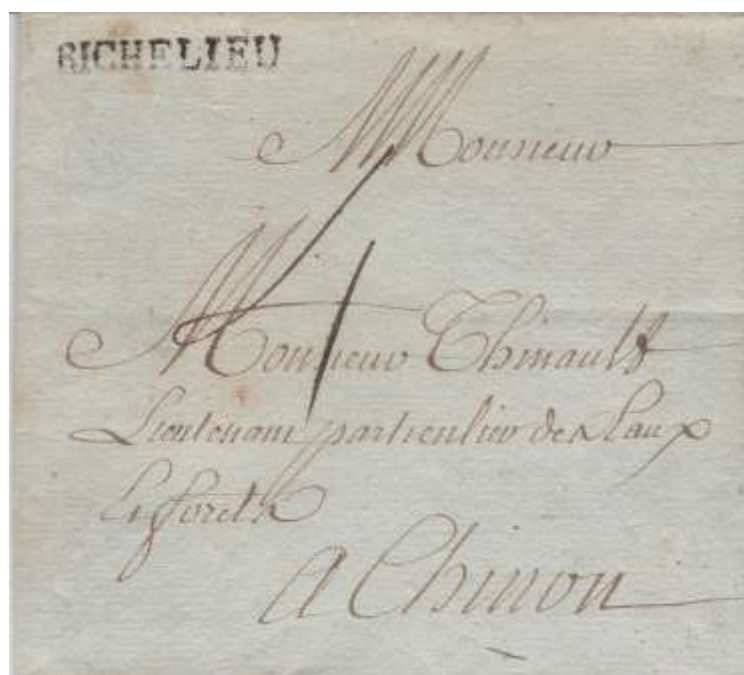 RICHELIEU
Monsieur
Monsieur Thinault
Lieutenant particulier des Eaux
Et forets
A Chinon